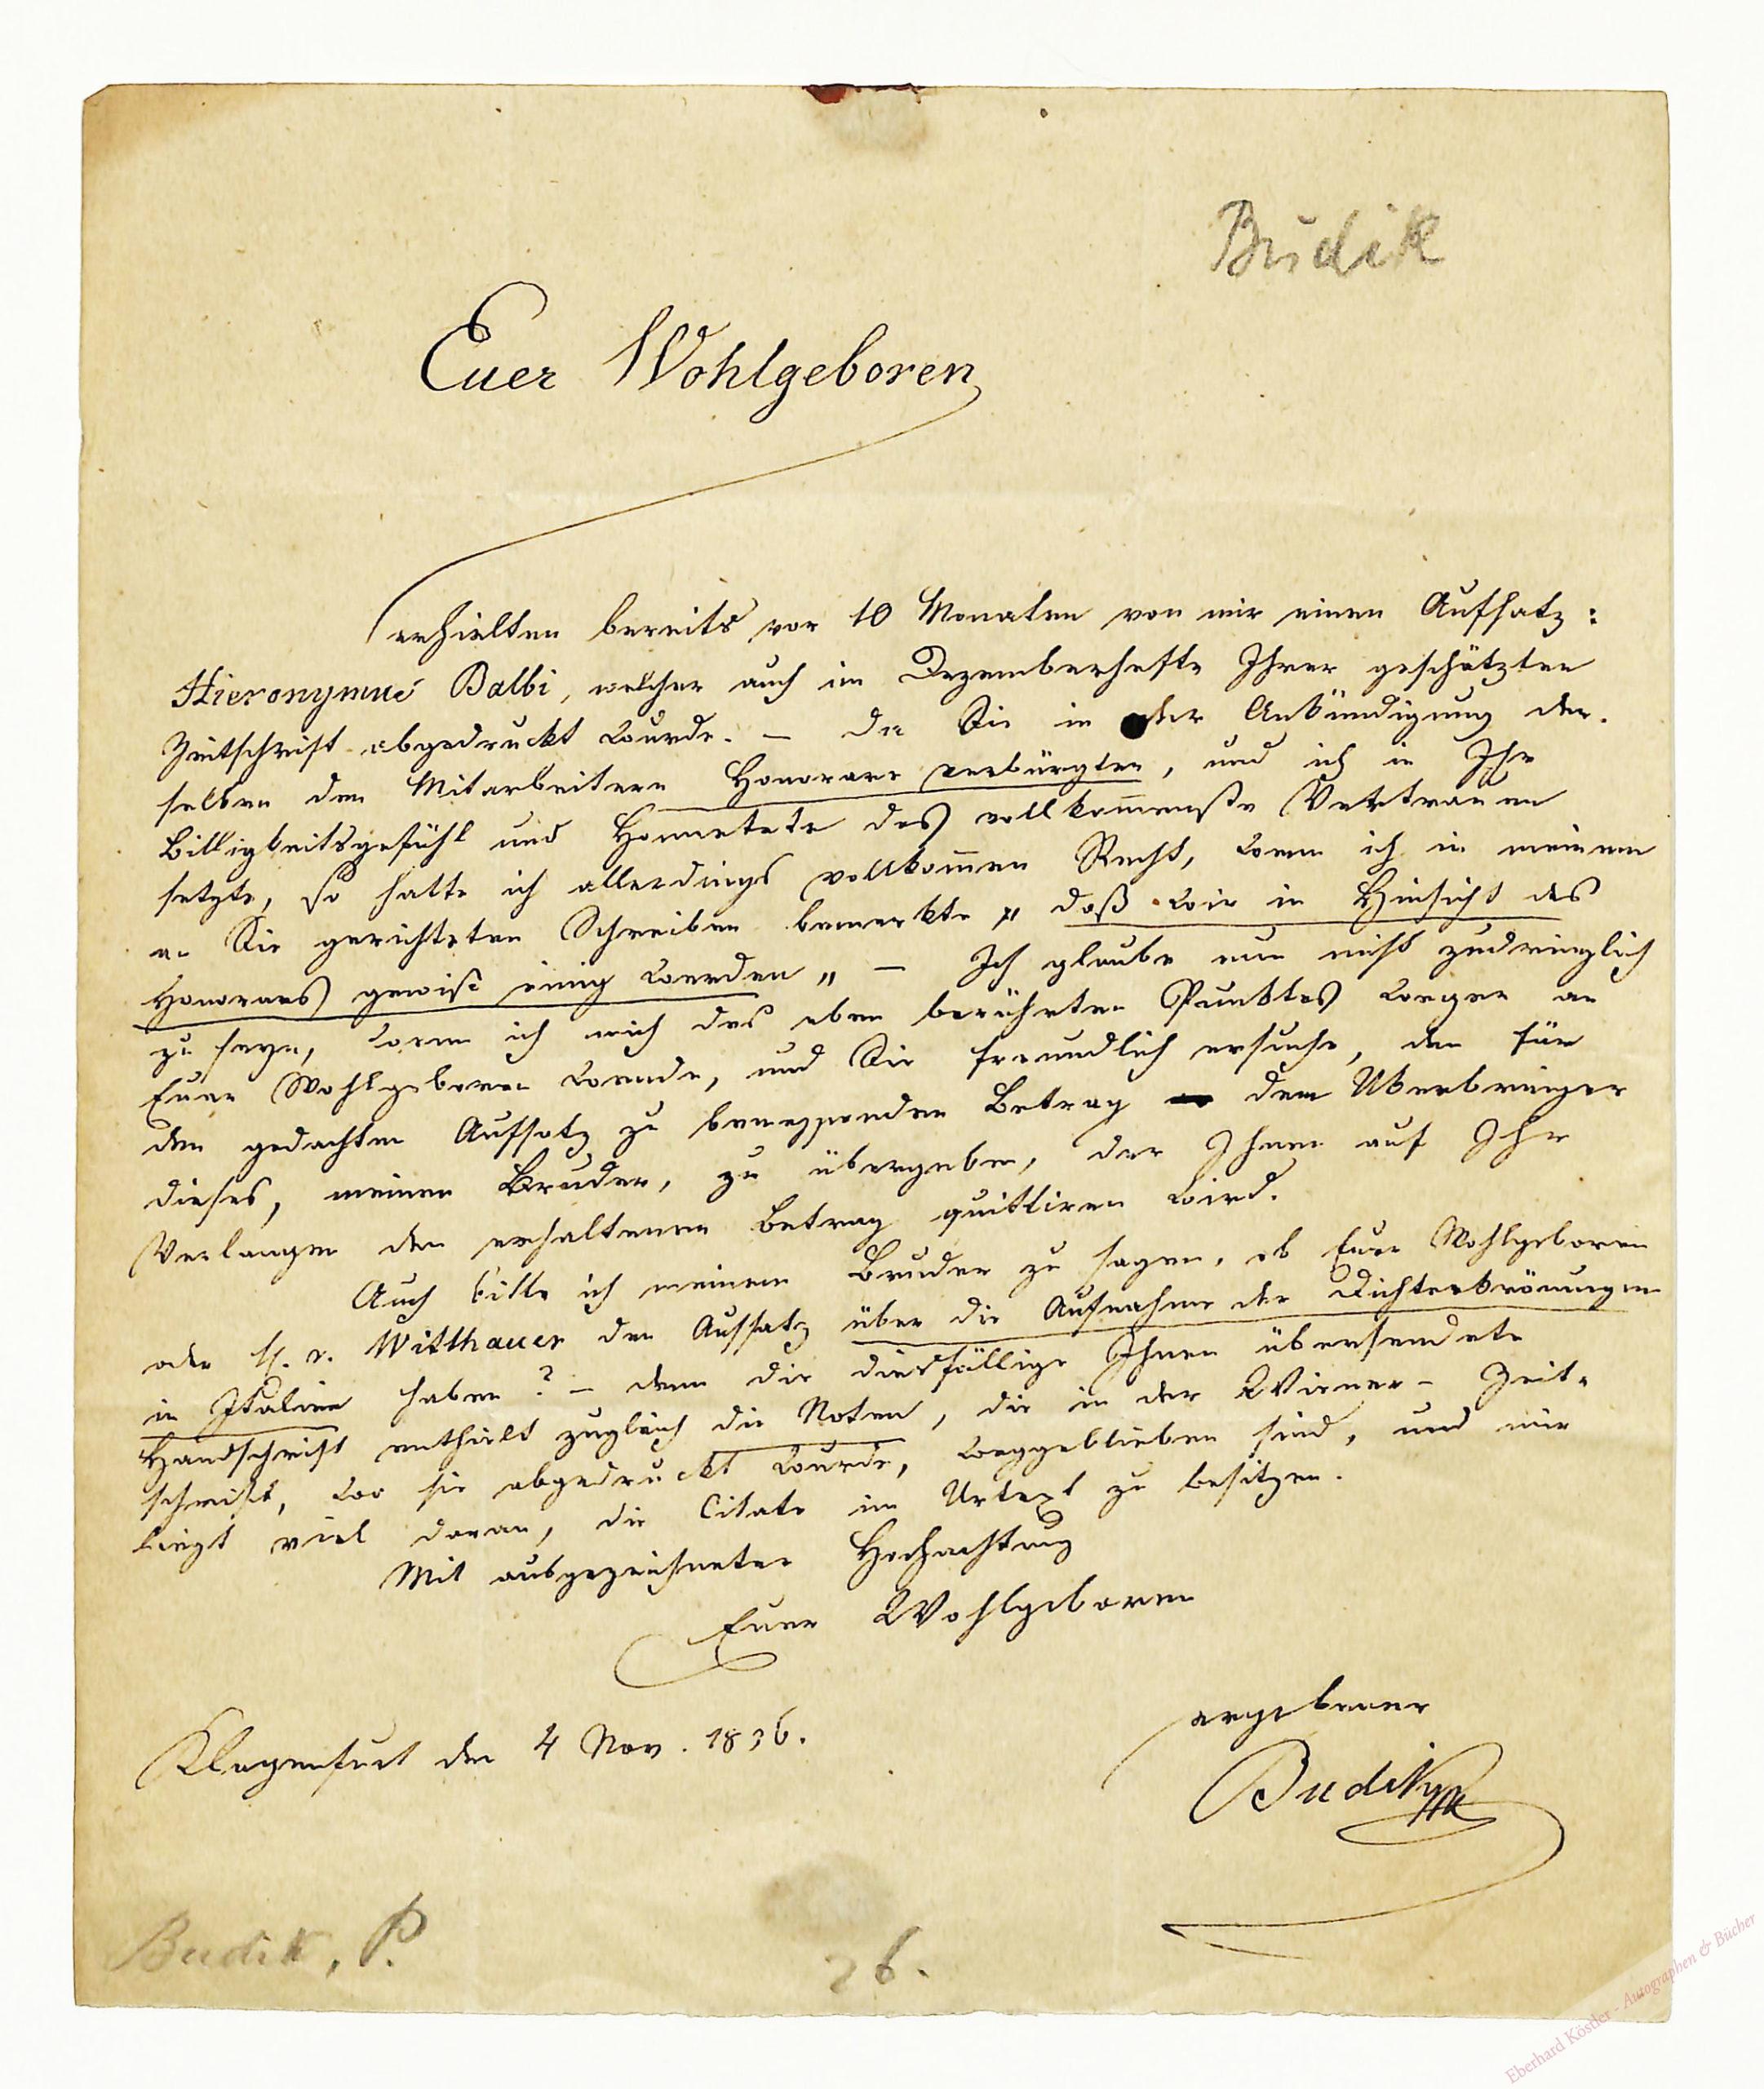 Budik
Euer Wohlgeboren
erhielten bereits vor 10 Monaten von mir einen Aufsatz:
Hieronymus Balbi, welcher auch im Dezemberhefte Ihrer geschätzten
Zeitschrift abgedruckt wurde. – Da Sie in der Ankündigung der-
selben den Mitarbeitern Honorare verbürgten, und ich in Ihr
Billigkeitsgefühl und Honnetete das vollkom̄enste Vertrauen
setzte, so hatte ich allerdings vollkom̄en Recht, wenn ich in meinem
an Sie gerichteten Schreiben bemerkte „ daß wir in Hinsicht des
Honorars gewiß einig werden „ – Ich glaube nun nicht zudringlich
zu seyn, wenn ich mich des eben berührten Punktes wegen an
Euer Wohlgeboren wende, und Sie freundlich ersuche, den für
den gedachten Aufsatz zu bemessenden Betrag dem Überbringer
dieses, meinem Bruder, zu übergeben, der Ihnen auf Ihr
Verlangen den erhaltenen Betrag quittiren wird.
Auch bitte ich meinem Bruder zu sagen, ob Euer Wohlgeboren
oder H. v. Witthauer den Aufsatz über die Aufnahme der Dichterkrönungen
in Italien haben? – denn die diesfällige Ihnen übersendete
Handschrift enthielt zugleich die Noten, die in der Wiener- Zeit-
schrift, wo sie abgedruckt wurde, weggeblieben sind, und mir
liegt viel daran, die Citate im Urtext zu besitzen.
Mit ausgezeichneter Hochachtung
Euer Wohlgeboren
ergebener
Klagenfurt den 4 Nov. 1836.
Budik
Budik, P.
26.
Eberhard Köstler - Autographen & Bücher